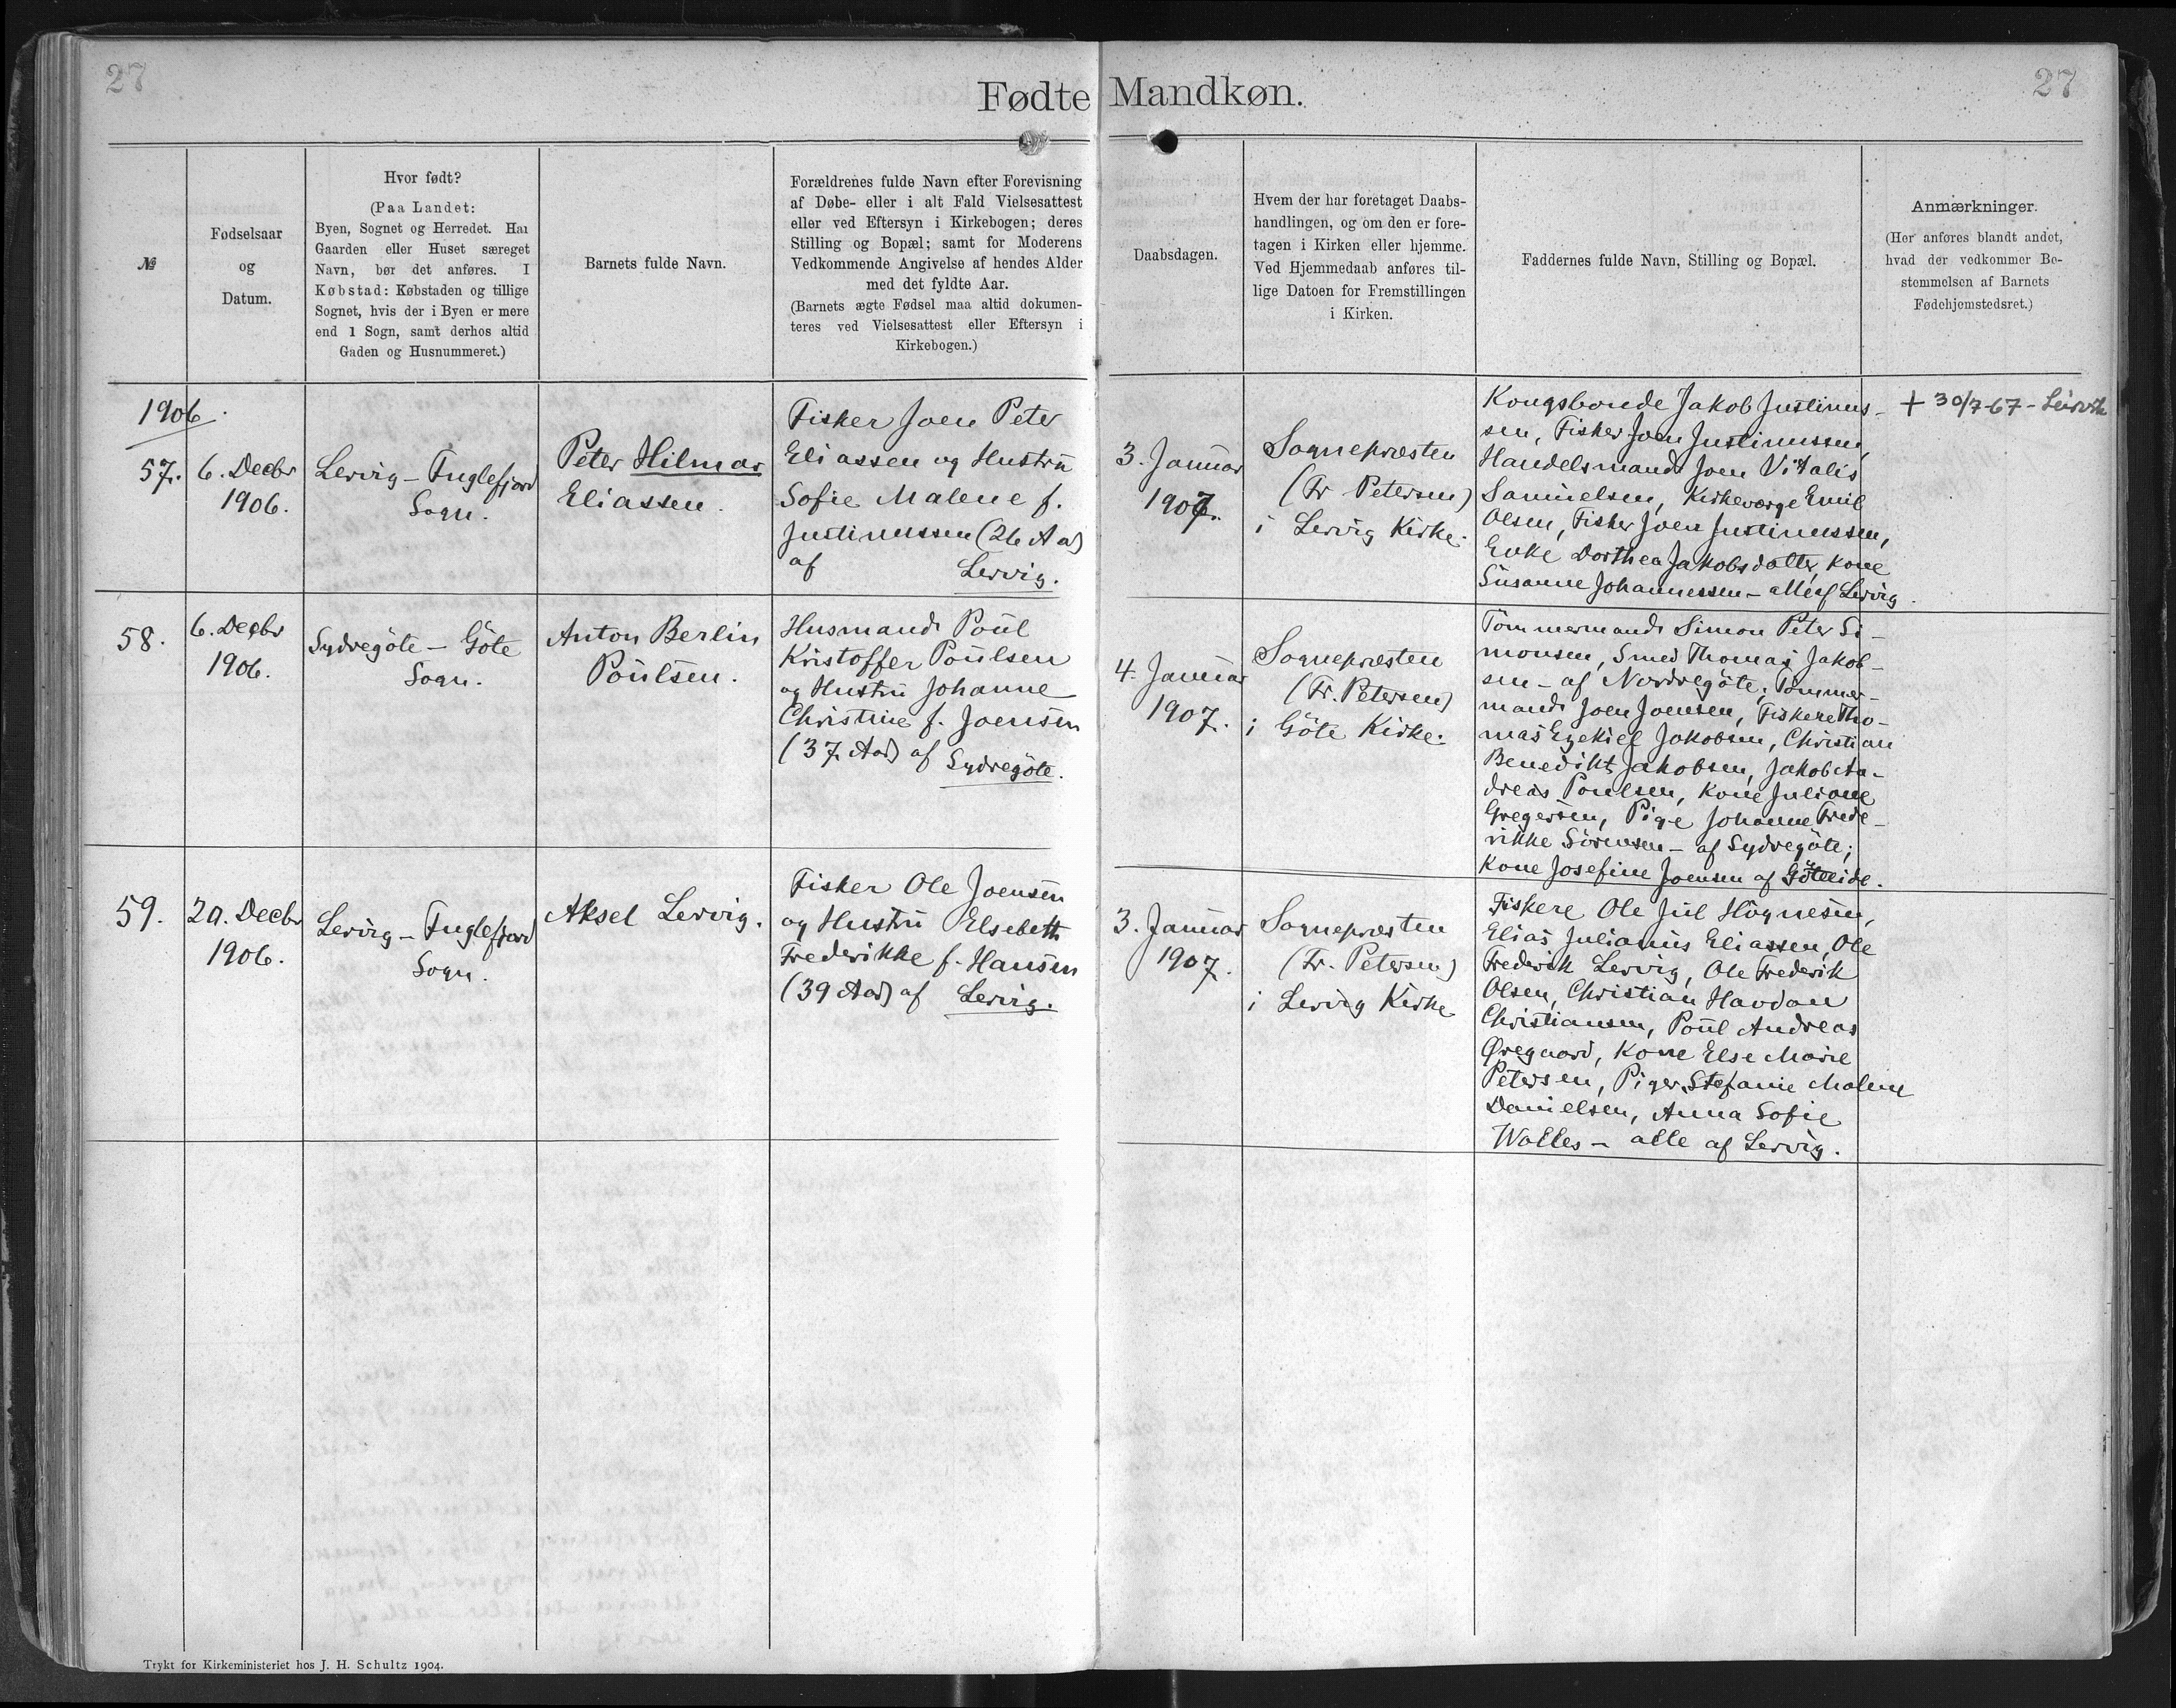 27
Fødte Mandkøn.
27
№
Fødselsaar
og
Datum.
Hvor født?
(Paa Landet:
Byen, Sognet og Herredet. Har
Gaarden eller Huset særeget
Navn, bør det anføres. I
Købstad: Købstaden og tillige
Sognet, hvis der i Byen er mere
end 1 Sogn, samt derhos altid
Gaden og Husnummeret.)
Barnets fulde Navn.
Forældrenes fulde Navn efter Forevisning
af Døbe- eller i alt Fald Vielsesattest
eller ved Eftersyn i Kirkebogen; deres
Stilling og Bopæl; samt for Moderens
Vedkommende Angivelse af hendes Alder
med det fyldte Aar.
(Barnets ægte Fødsel maa altid dokumen-
teres ved Vielsesattest eller Eftersyn i
Kirkebogen.)
Daabsdagen.
Hvem der har foretaget Daabs-
handlingen, og om den er fore-
tagen i Kirken eller hjemme.
Ved Hjemmedaab anføres til-
lige Datoen for Fremstillingen
i Kirken.
Faddernes fulde Navn, Stilling og Bopæl.
Anmærkninger.
(Her anføres blandt andet,
hvad der vedkommer Be-
stemmelsen af Barnets
Fødehjemstedsret.)
1906.
57.
6. Decbr
1906.
Lervig - Fuglefjord
Sogn.
Peter Hilmar
Eliassen.
Fisker Joen Peter
Eliassen og Hustrü
Sofie Malene f.
Justinussen (26 Aar)
af Lervig.
3. Januar
1907.
Sognepræsten
(Fr. Petersen)
i Lervig Kirke.
Kongsbonde Jakob Justinus-
sen, Fisker Joen Justinussen,
Handelsmand Joen Vitalis
Samuelsen, Kirkeværge Emil
Olsen, Fisker Joen Justinussen,
Enke Dorthea Jakobsdatter, Kone
Susanne Johannessen - alle af Lervig.
+ 30/7-67 - Leirvik
58.
6. Decbr
1906.
Sydregöte - Göte
Sogn.
Anton Berlin
Poülsen.
Husmand Poül
Kristoffer Poülsen
og Hustrü Johanne
Christine f. Joensen
(37 Aar) af Sydregöte.
4. Januar
1907.
Sognepræsten
(Fr. Petersen)
i Göte Kirke.
Tömmermand Simon Peter Si-
monsen, Smed Thomas Jakob-
sen - af Nordregöte; Tömmer-
mand Joen Joensen, Fiskere Tho-
mas Ezekiel Jakobsen, Christian
Benedikt Jakobsen, Jakob An-
dreas Poulsen, Kone Juliane
Gregersen, Pige Johanne Frede-
rikke Sörensen - af Sydregöte;
Kone Josefine Joensen af Göteeide.
59.
20. Decbr
1906.
Lervig - Fuglefjord
Sogn.
Aksel Lervig.
Fisker Ole Joensen
og Hustrü Elsebeth
Frederikke f. Hansen
(39 Aar) af Lervig.
3. Januar
1907.
Sognepræsten
(Fr. Petersen)
i Lervig Kirke
Fiskere Ole Jül Högnesen,
Elias Julianus Eliassen, Ole
Frederik Lervig, Ole Frederik
Olsen, Christian Havdan
Christiansen, Poül Andreas
Øregaard, Kone Else Marie
Petersen, Piger Stefanie Malene
Danielsen, Anna Sofie
Walles - alle af Lervig.
Trykt for Kirkeministeriet hos J. H. Schultz 1904.